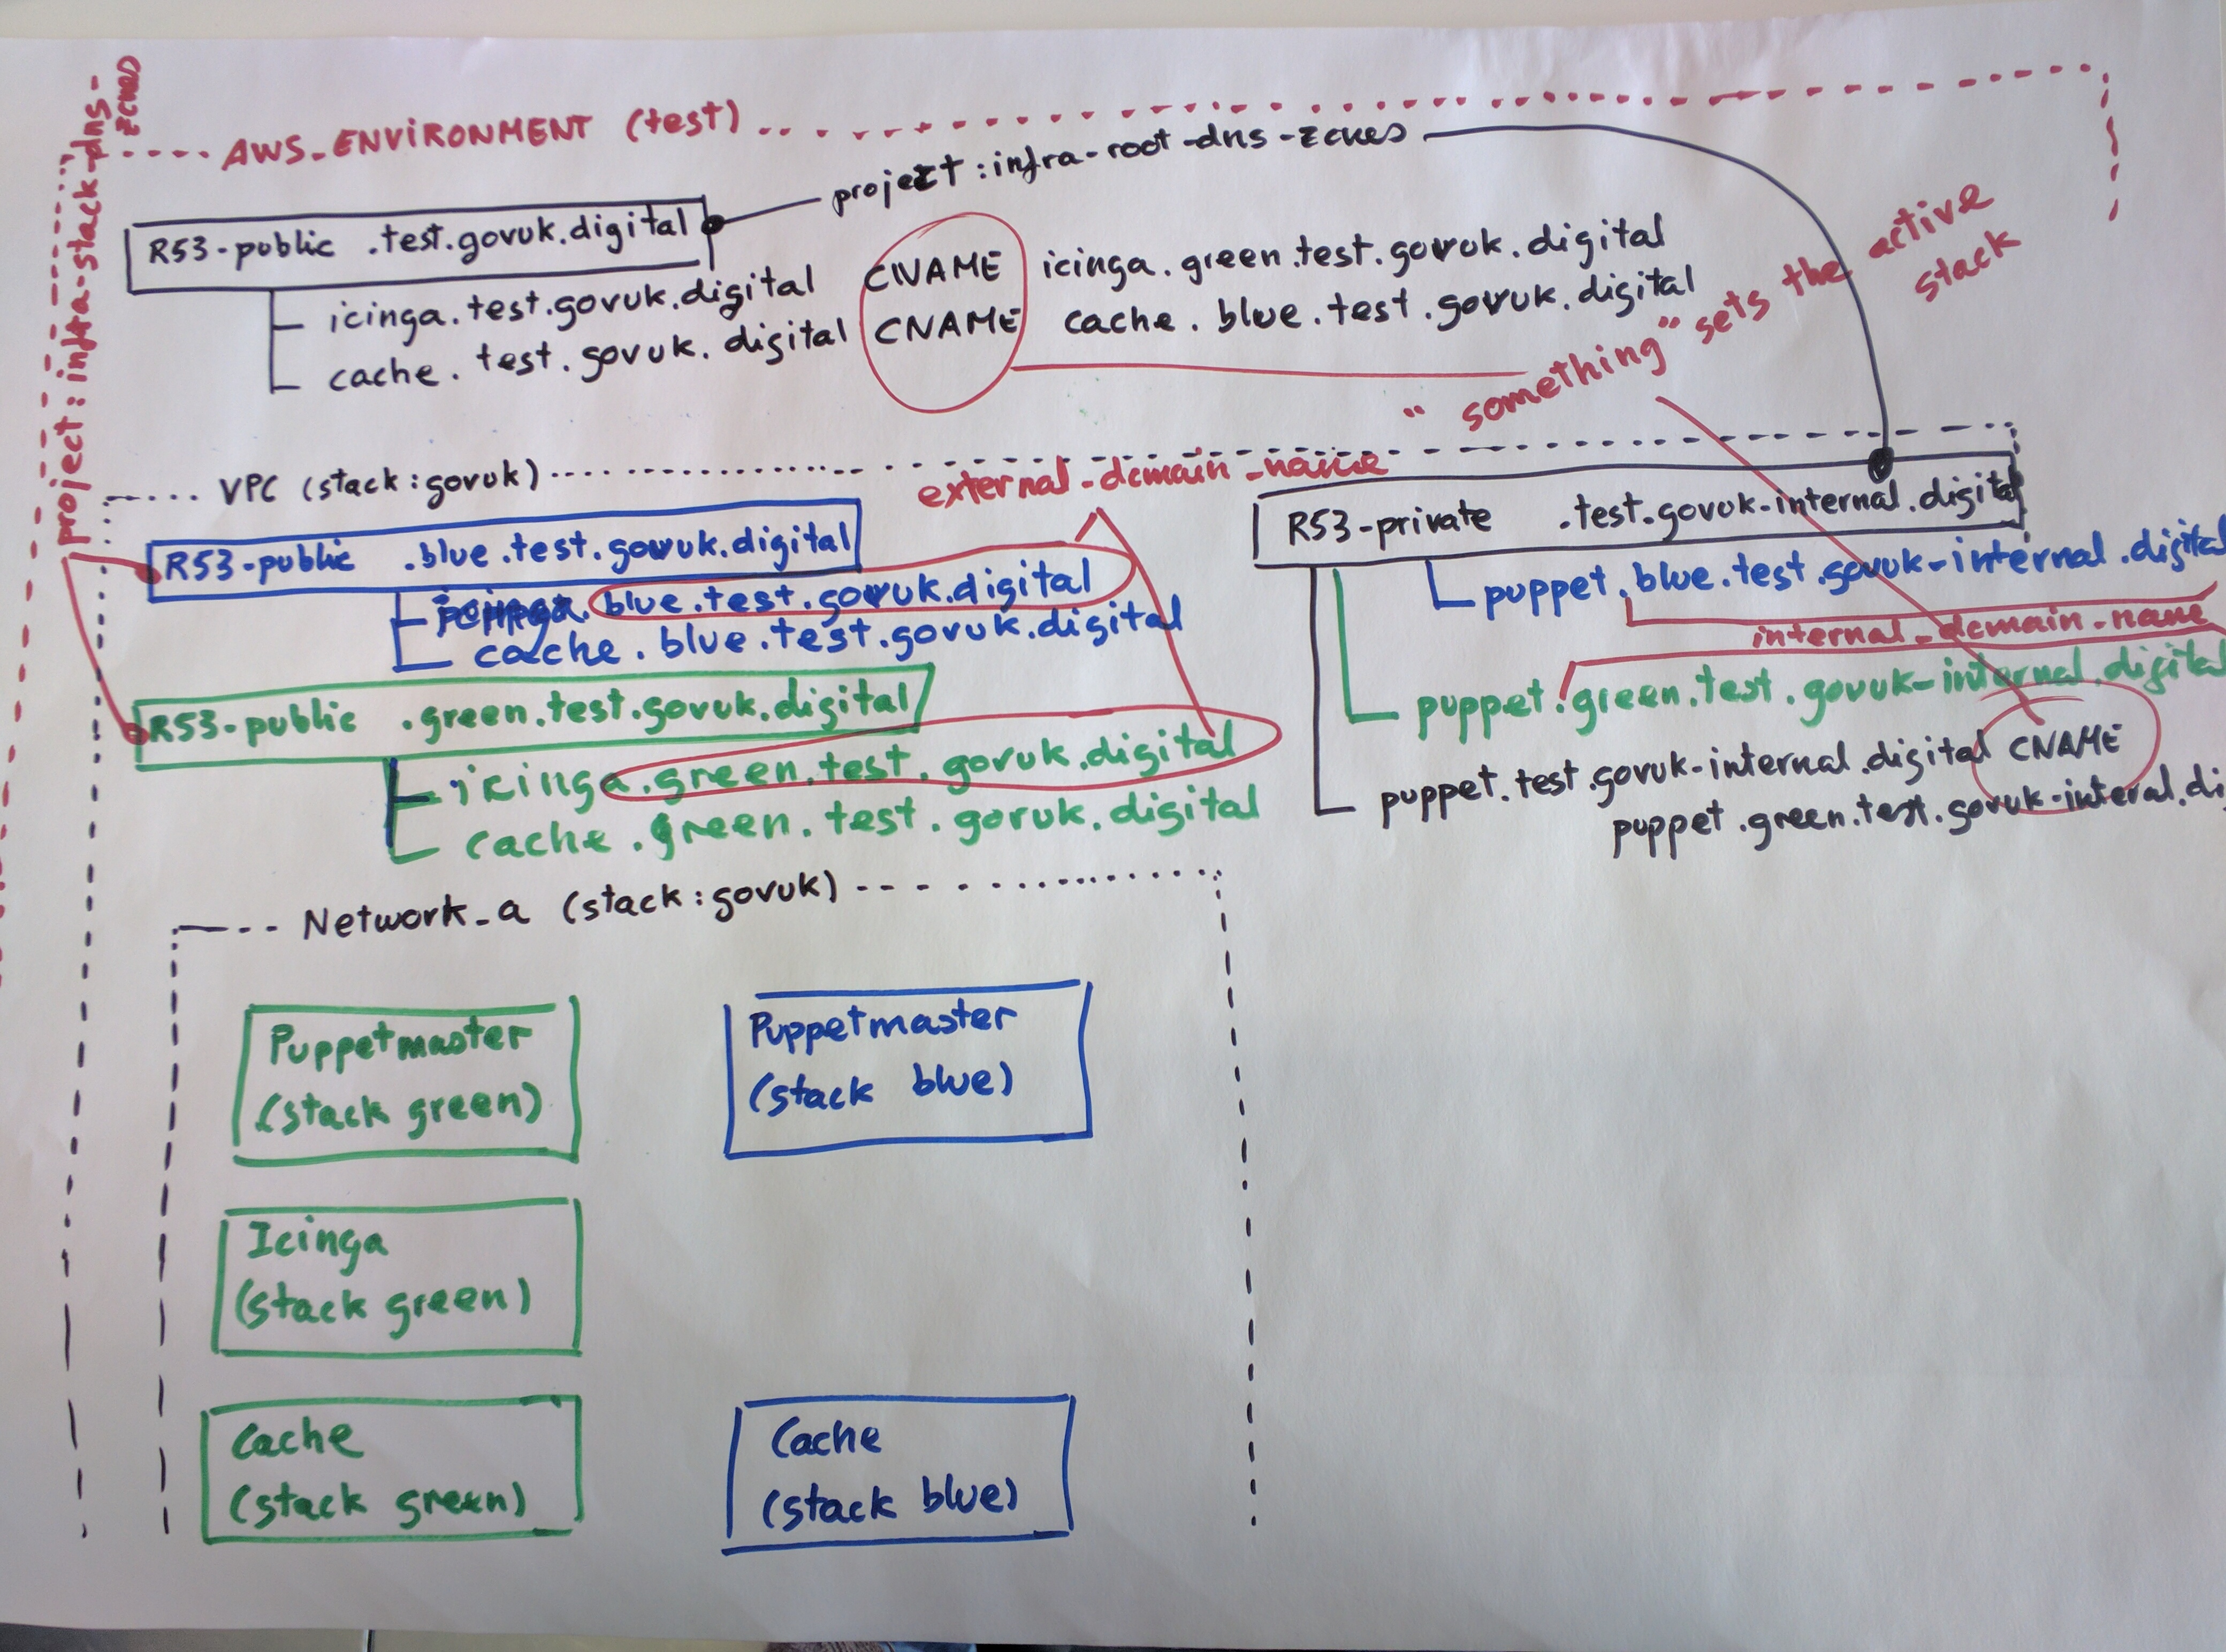 project:infra-stack-dns-
zones
AWS_ENVIRONMENT (test)
project:infra-root-dns-zones
R53-public .test.govuk.digital
icinga.test.govuk.digital CNAME icinga.green.test.govuk.digital
cache.test.govuk.digital CNAME cache.blue.test.govuk.digital
"something" sets the active
stack
VPC (stack:govuk)
external-domain-name
R53-public .blue.test.govuk.digital
icinga.blue.test.govuk.digital
cache.blue.test.govuk.digital
R53-public .green.test.govuk.digital
icinga.green.test.govuk.digital
cache.green.test.govuk.digital
R53-private .test.govuk-internal.digital
puppet.blue.test.govuk-internal.digital
internal_domain_name
puppet.green.test.govuk-internal.digital
puppet.test.govuk-internal.digital CNAME
puppet.green.test.govuk-interal.di
Network_a (stack:govuk)
Puppetmaster
(stack green)
Puppetmaster
(stack blue)
Icinga
(stack green)
Cache
(stack green)
Cache
(stack blue)